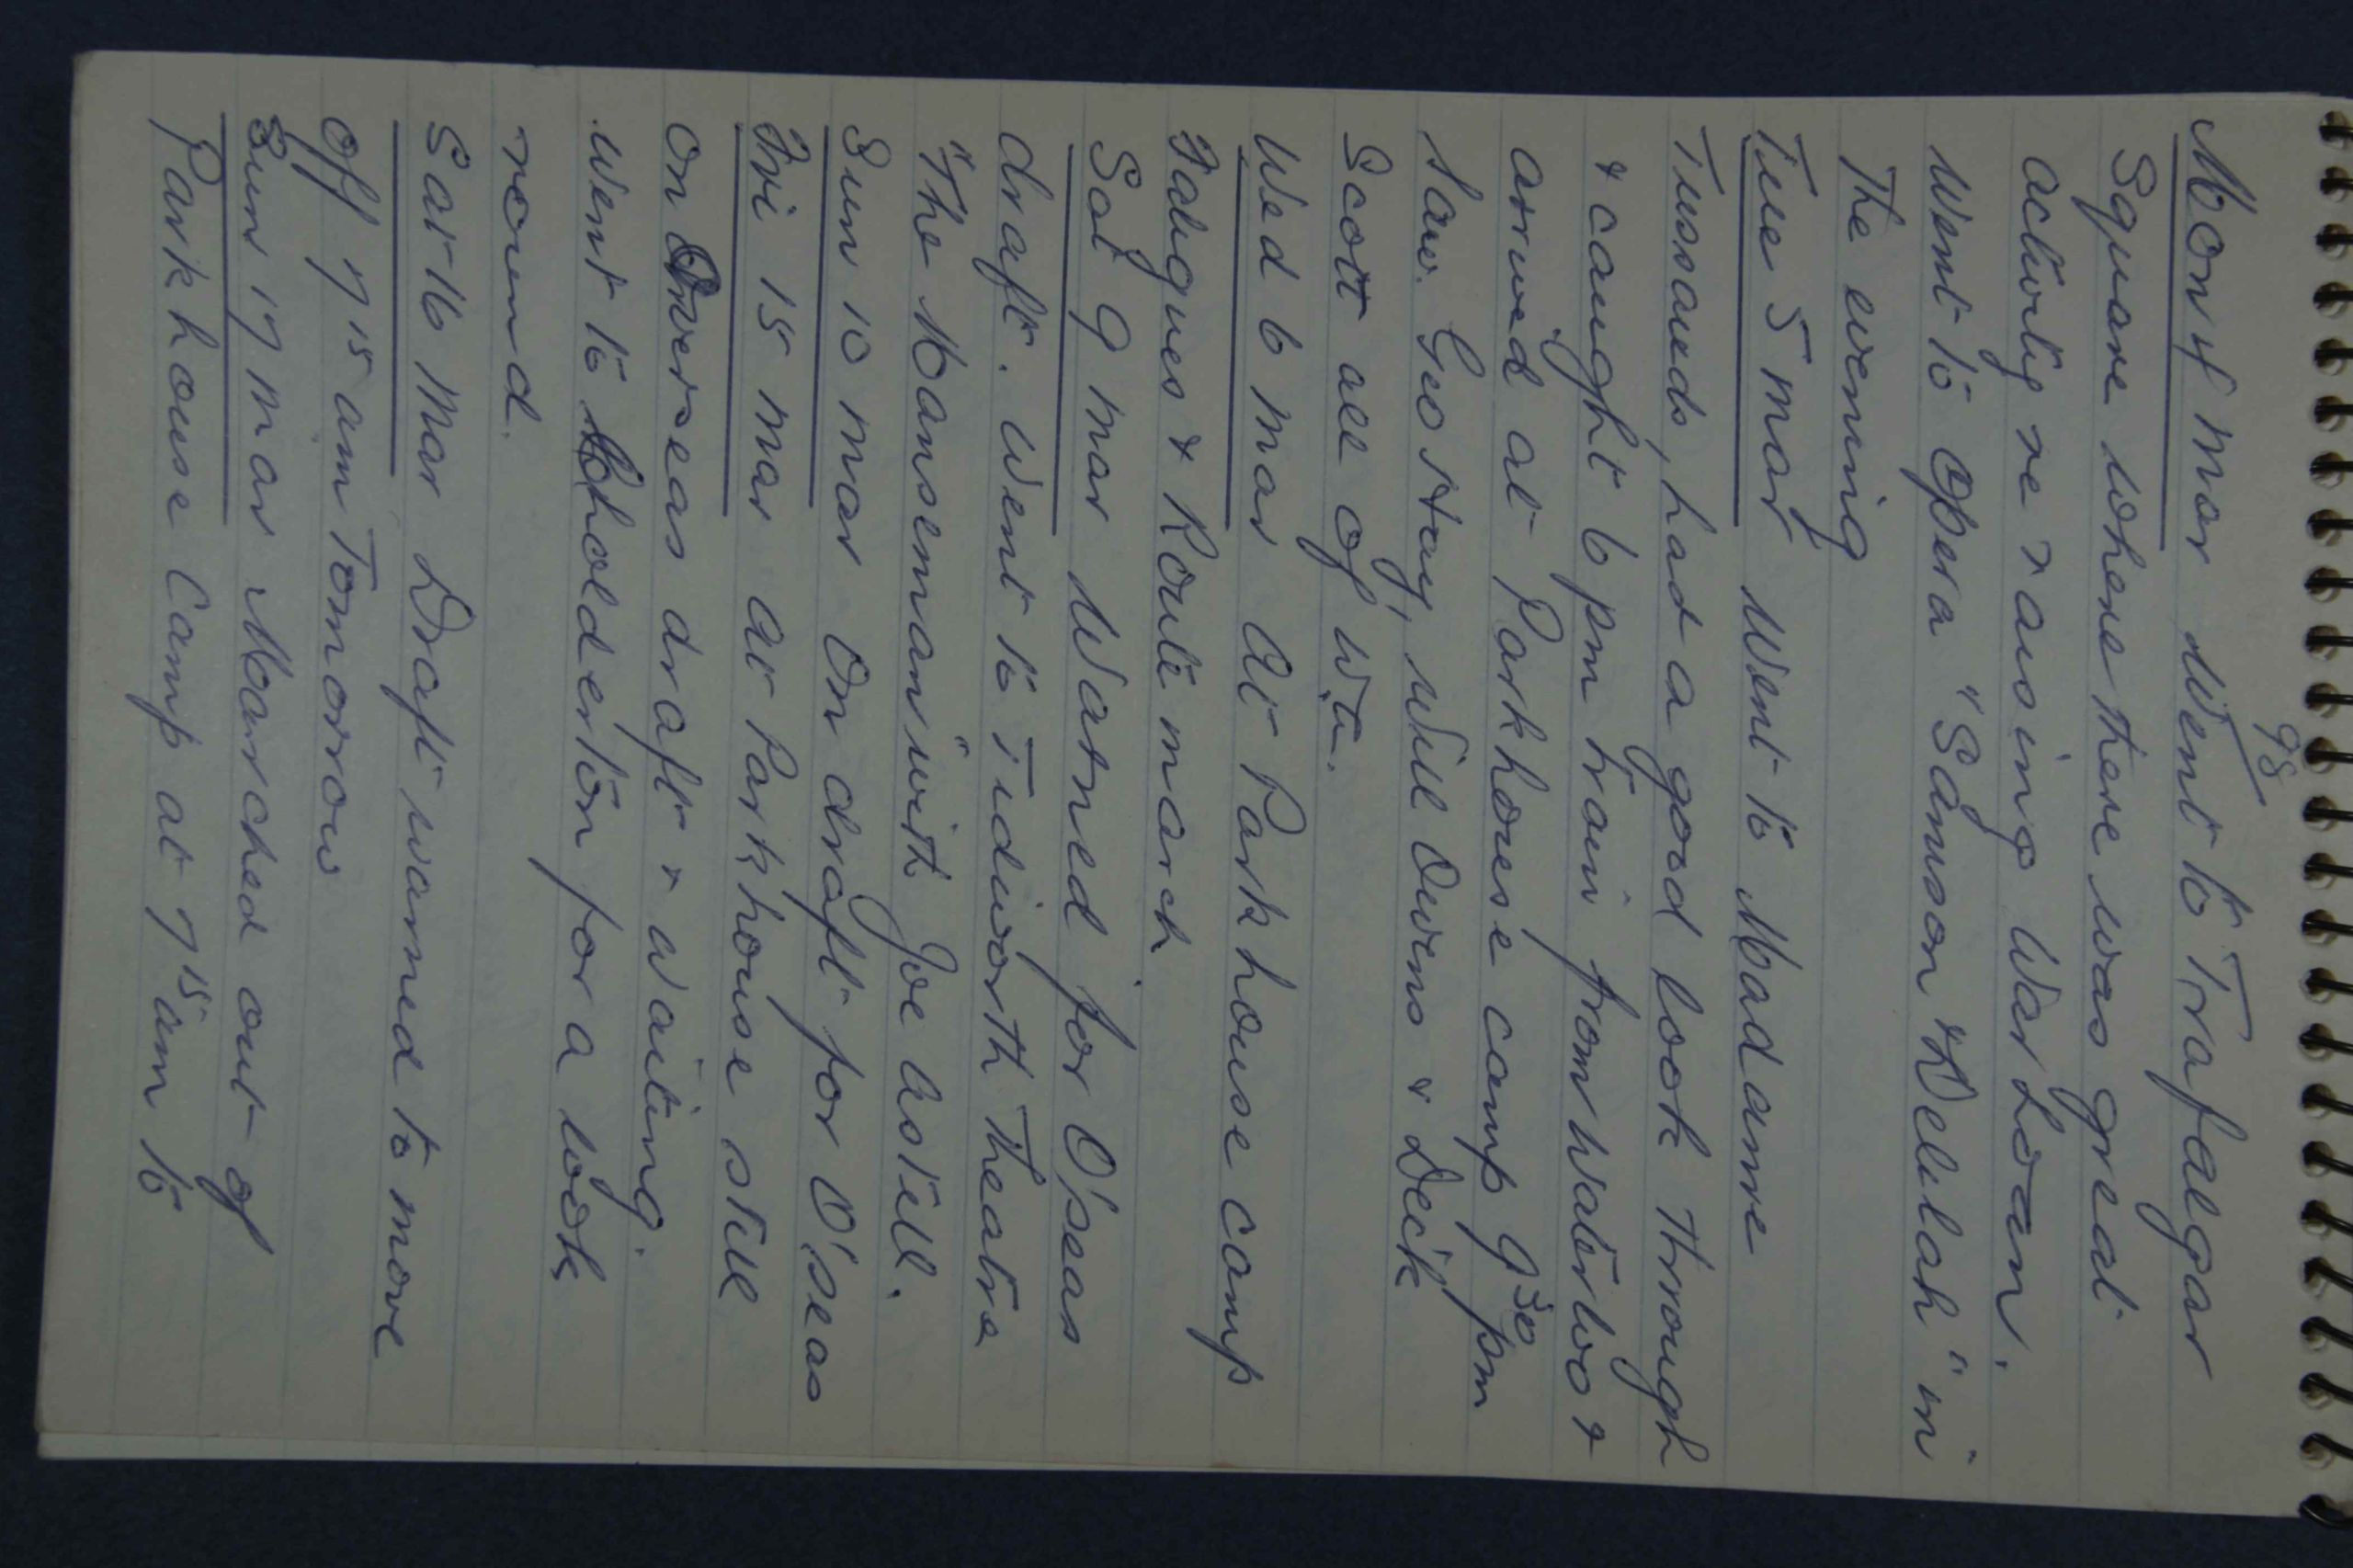 98
Mon 4 Mar Went to Trafalgar
Square where there was great
activity re raising War Loan.
Went to Opera "Samson & Delilah" in
the evening
Tue 5 Mar Went to Madame
Tussauds, had a good look through
& caught 6 pm train from Waterloo &
arrived at Parkhouse camp 9 30 pm
Saw Geo Hay, Will Owens & Dick
Scott all of WA.
Wed 6 Mar At Park house camp
Fatigues & Route march
Sat 9 Mar Warned for O'seas
draft. Went to Tidworth Theatre
"The Manseman" with Joe Astill.
Sun 10 Mar On draft for O'seas
Fri 15 Mar At Park house still
on Overseas draft & waiting.
Went to Sholderton for a look
round.
Sat 16 Mar Draft warned to move
off 7 15 am Tomorrow
Sun 17 Mar Marched out of
Park house Camp at 7 15 am to